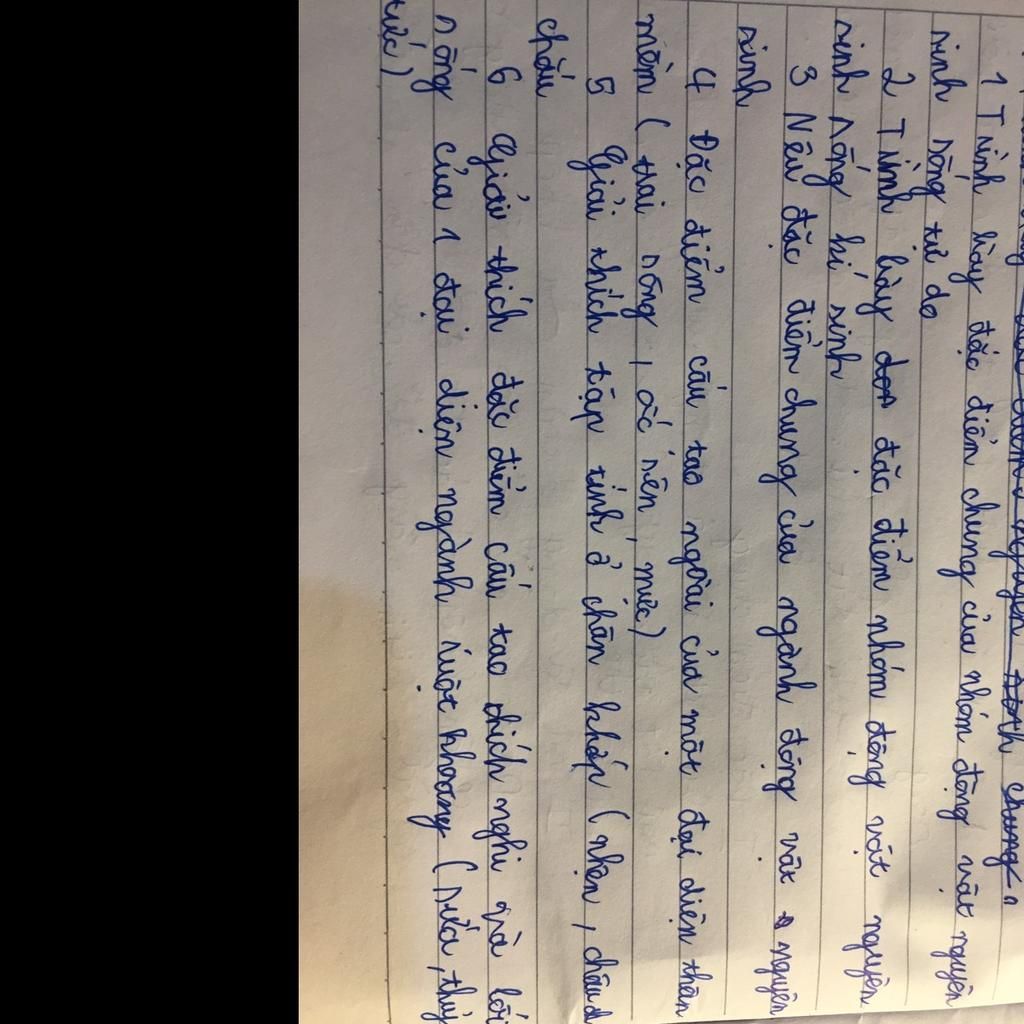 chung
1 Trình bày đặc điểm chung của nhóm động vật nguyên
sinh sống tự do
2 Trình bày đặc điểm nhóm động vật nguyên
sinh sống kí sinh
3 Nêu đặc điểm chung của ngành động vật nguyên
sinh
4 Đặc điểm cấu tạo ngoài của một đại diện thân
mềm ( trai sông, ốc sên, mực)
5 Giải thích tập tính ở chân khớp ( nhện, châu
chấu
6 Giải thích đặc điểm cấu tạo thích nghi và lối
sống của 1 đại diện ngành ruột khoang ( sứa, thủy
tức)